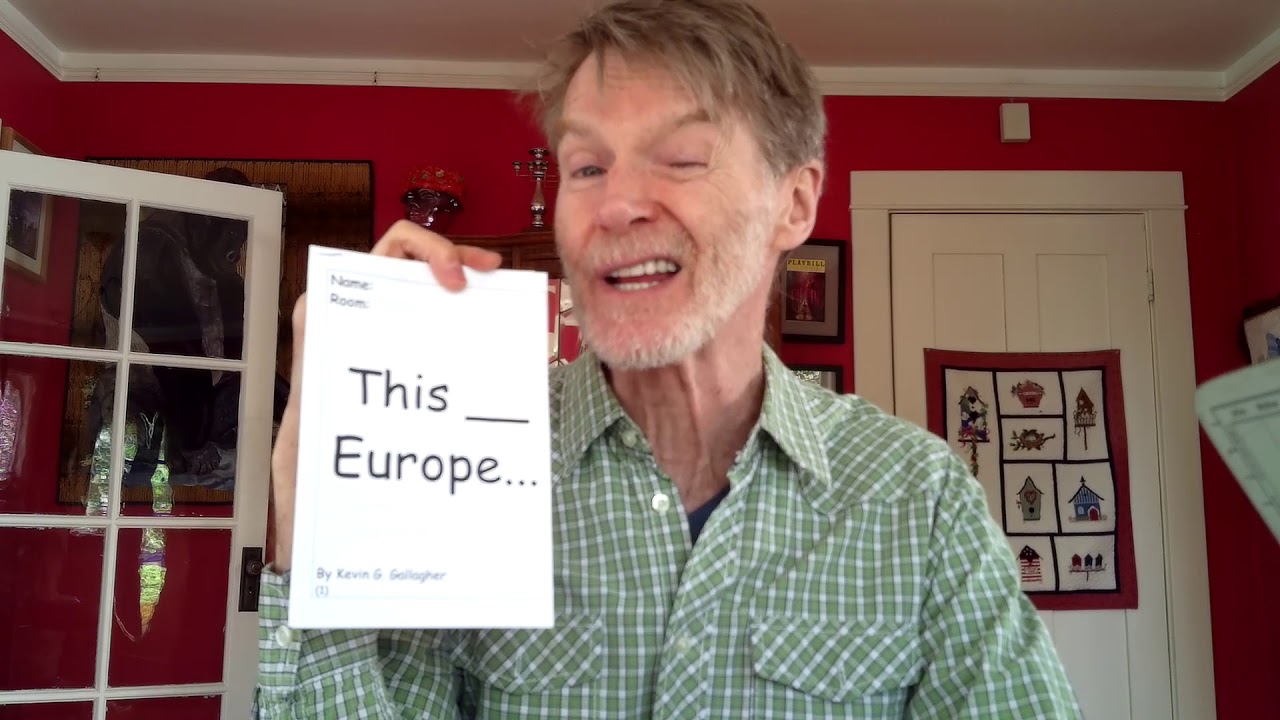 Name:
Room:
This __
Europe...
By Kevin G Gallagher
(1)
PLAYBILL